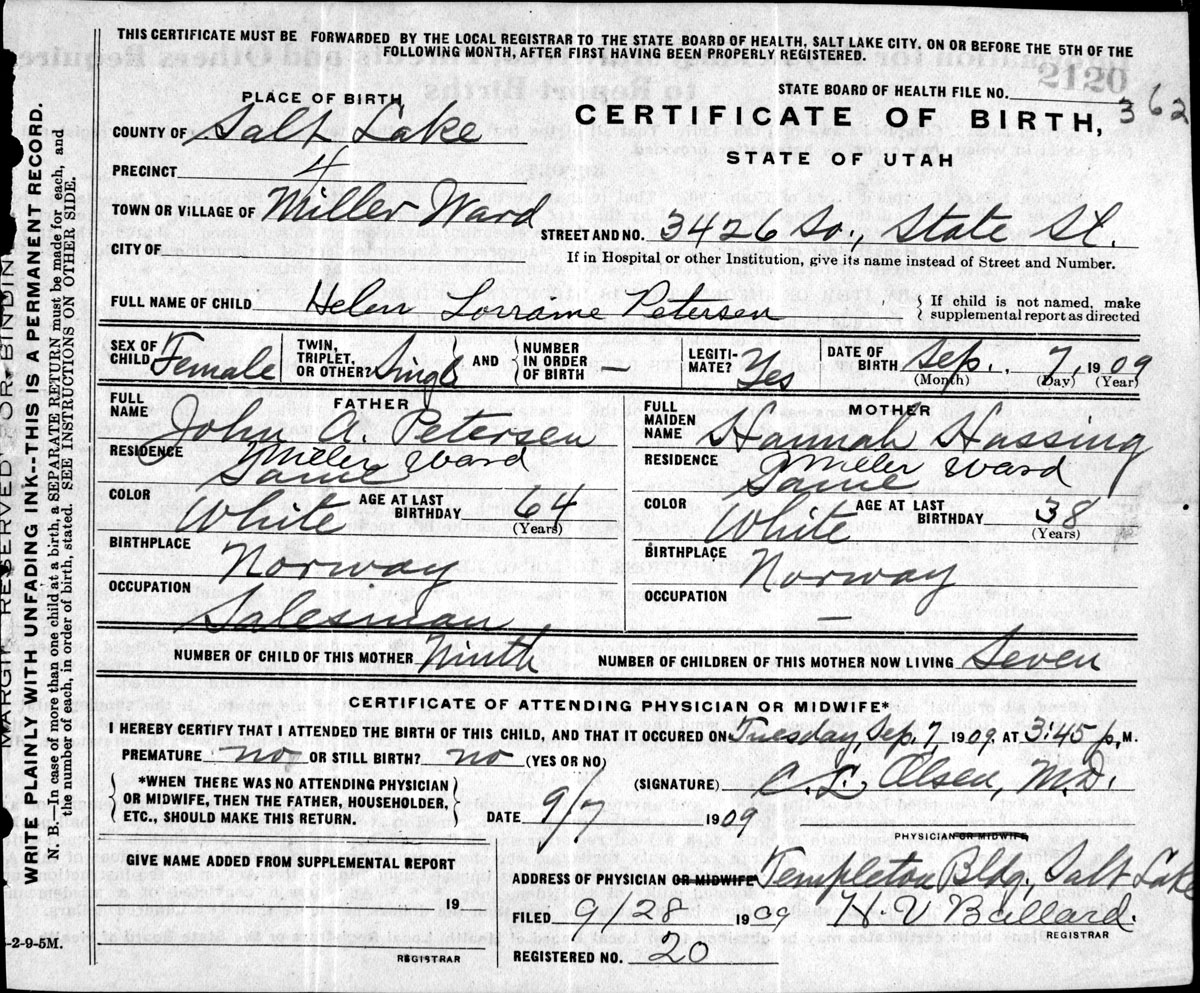 THIS CERTIFICATE MUST BE FORWARDED BY THE LOCAL REGISTRAR TO THE STATE BOARD OF HEALTH, SALT LAKE CITY. ON OR BEFORE THE 5TH OF THE
FOLLOWING MONTH, AFTER FIRST HAVING BEEN PROPERLY REGISTERED.
2120
PLACE OF BIRTH
STATE BOARD OF HEALTH FILE NO. 362
COUNTY OF Salt Lake
CERTIFICATE OF BIRTH,
STATE OF UTAH
PRECINCT 4
TOWN OR VILLAGE OF Miller Ward
STREET AND NO. 3426 So., State St.
CITY OF
If in Hospital or other Institution, give its name instead of Street and Number.
FULL NAME OF CHILD Helen Lorraine Petersen { If child is not named, make
supplemental report as directed
SEX OF CHILD Female TWIN, TRIPLET, OR OTHER? Single AND { NUMBER IN ORDER OF BIRTH — LEGITI-MATE? Yes DATE OF BIRTH Sep., 7, 1909
(Month) (Day) (Year)
FATHER
FULL NAME John A. Petersen
RESIDENCE Miller Ward
Same
COLOR White AGE AT LAST BIRTHDAY 64
(Years)
BIRTHPLACE Norway
OCCUPATION Salesman
MOTHER
FULL MAIDEN NAME Hannah Hassing
RESIDENCE Miller Ward
Same
COLOR White AGE AT LAST BIRTHDAY 38
(Years)
BIRTHPLACE Norway
OCCUPATION —
NUMBER OF CHILD OF THIS MOTHER Ninth NUMBER OF CHILDREN OF THIS MOTHER NOW LIVING Seven
CERTIFICATE OF ATTENDING PHYSICIAN OR MIDWIFE*
I HEREBY CERTIFY THAT I ATTENDED THE BIRTH OF THIS CHILD, AND THAT IT OCCURED ON Tuesday, Sep. 7, 1909. AT 3:45 p, M.
PREMATURE no OR STILL BIRTH? no (YES OR NO)
{ *WHEN THERE WAS NO ATTENDING PHYSICIAN
OR MIDWIFE, THEN THE FATHER, HOUSEHOLDER,
ETC., SHOULD MAKE THIS RETURN. }
(SIGNATURE) C. L. Olsen, M.D.
DATE 9/7 1909
PHYSICIAN OR MIDWIFE
GIVE NAME ADDED FROM SUPPLEMENTAL REPORT
19
REGISTRAR
ADDRESS OF PHYSICIAN OR MIDWIFE Templeton Bldg, Salt Lake
FILED 9/28 1909 H. V Ballard.
REGISTRAR
REGISTERED NO. 20
-2-9-5M.
MARGIN RESERVED FOR BINDIN
WRITE PLAINLY WITH UNFADING INK--THIS IS A PERMANENT RECORD.
N. B.—In case of more than one child at a birth, a SEPARATE RETURN must be made for each, and
the number of each, in order of birth, stated. SEE INSTRUCTIONS ON OTHER SIDE.